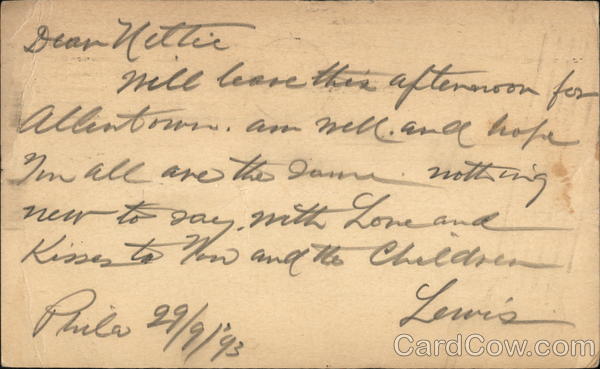 Dear Nettie
Will leave this afternoon for
Allentown. am well. and hope
You all are the same. nothing
new to say. with Love and
Kisses to You and the Children
Lewis.
Phila 29/9/93
CardCow.com